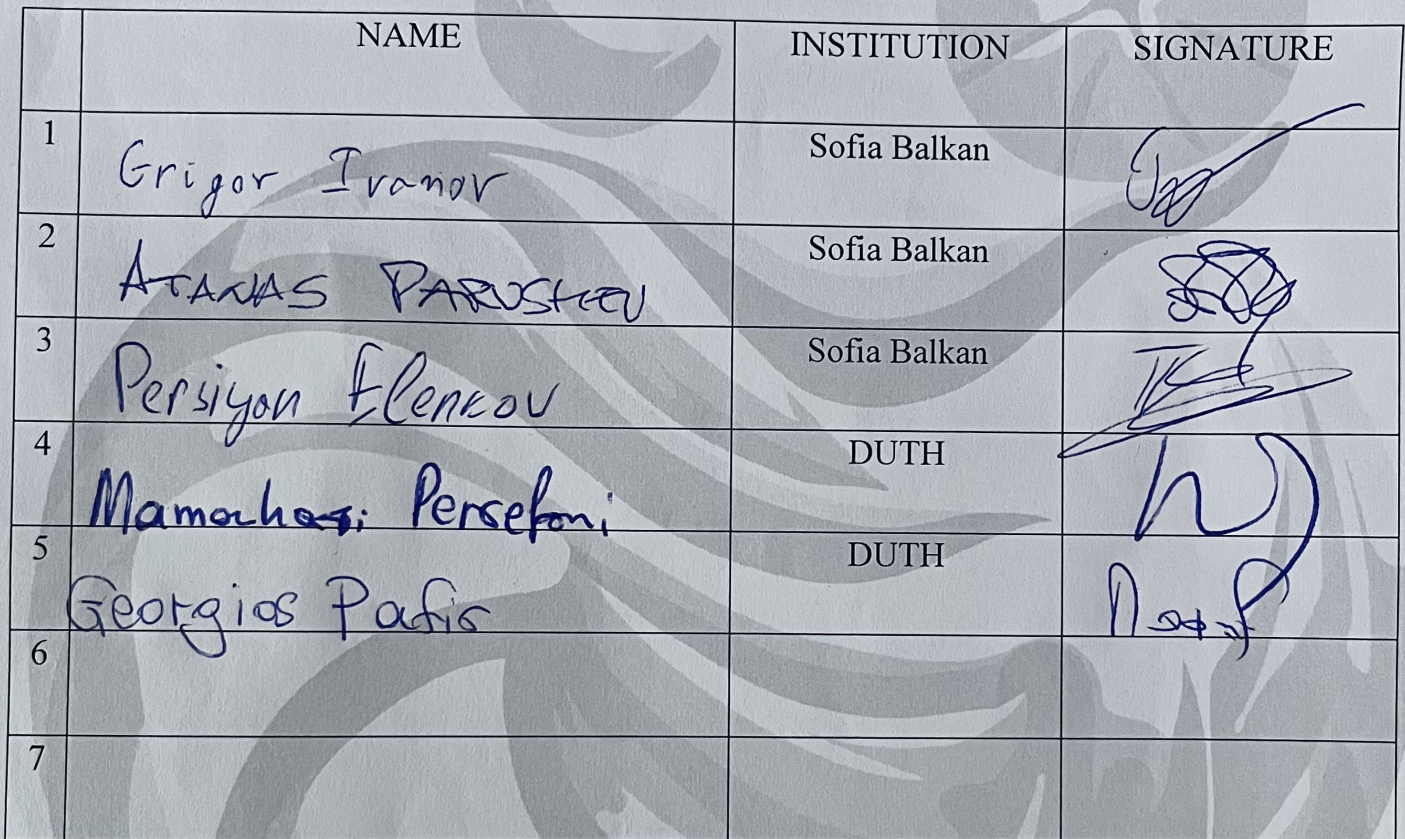 NAME INSTITUTION SIGNATURE
1 Grigor Ivanov Sofia Balkan
2 ATANAS PARUSHEV Sofia Balkan
3 Persiyan Elenkov Sofia Balkan
4 Persefoni DUTH
5 Georgios Pafis DUTH
6
7